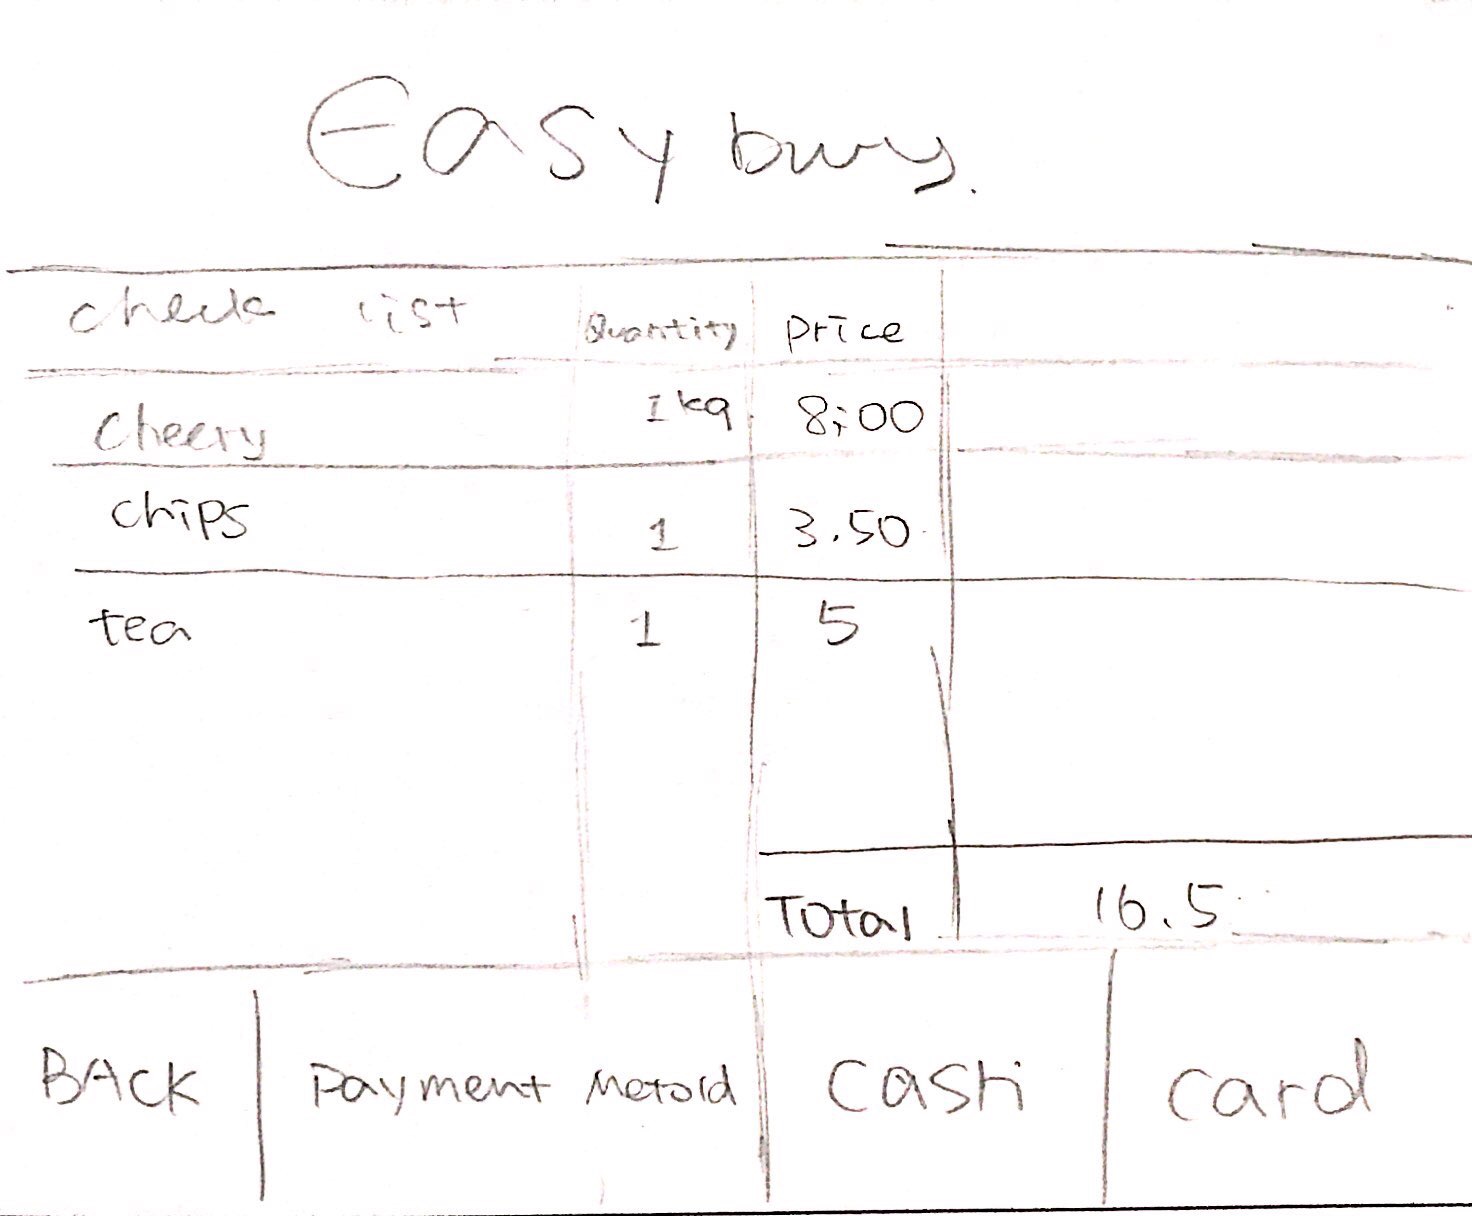 Easy buy.
check list Quantity price
cheery 1kg 8;00
chips 1 3.50
tea 1 5
Total 16.5
BACK Payment Metold cash card